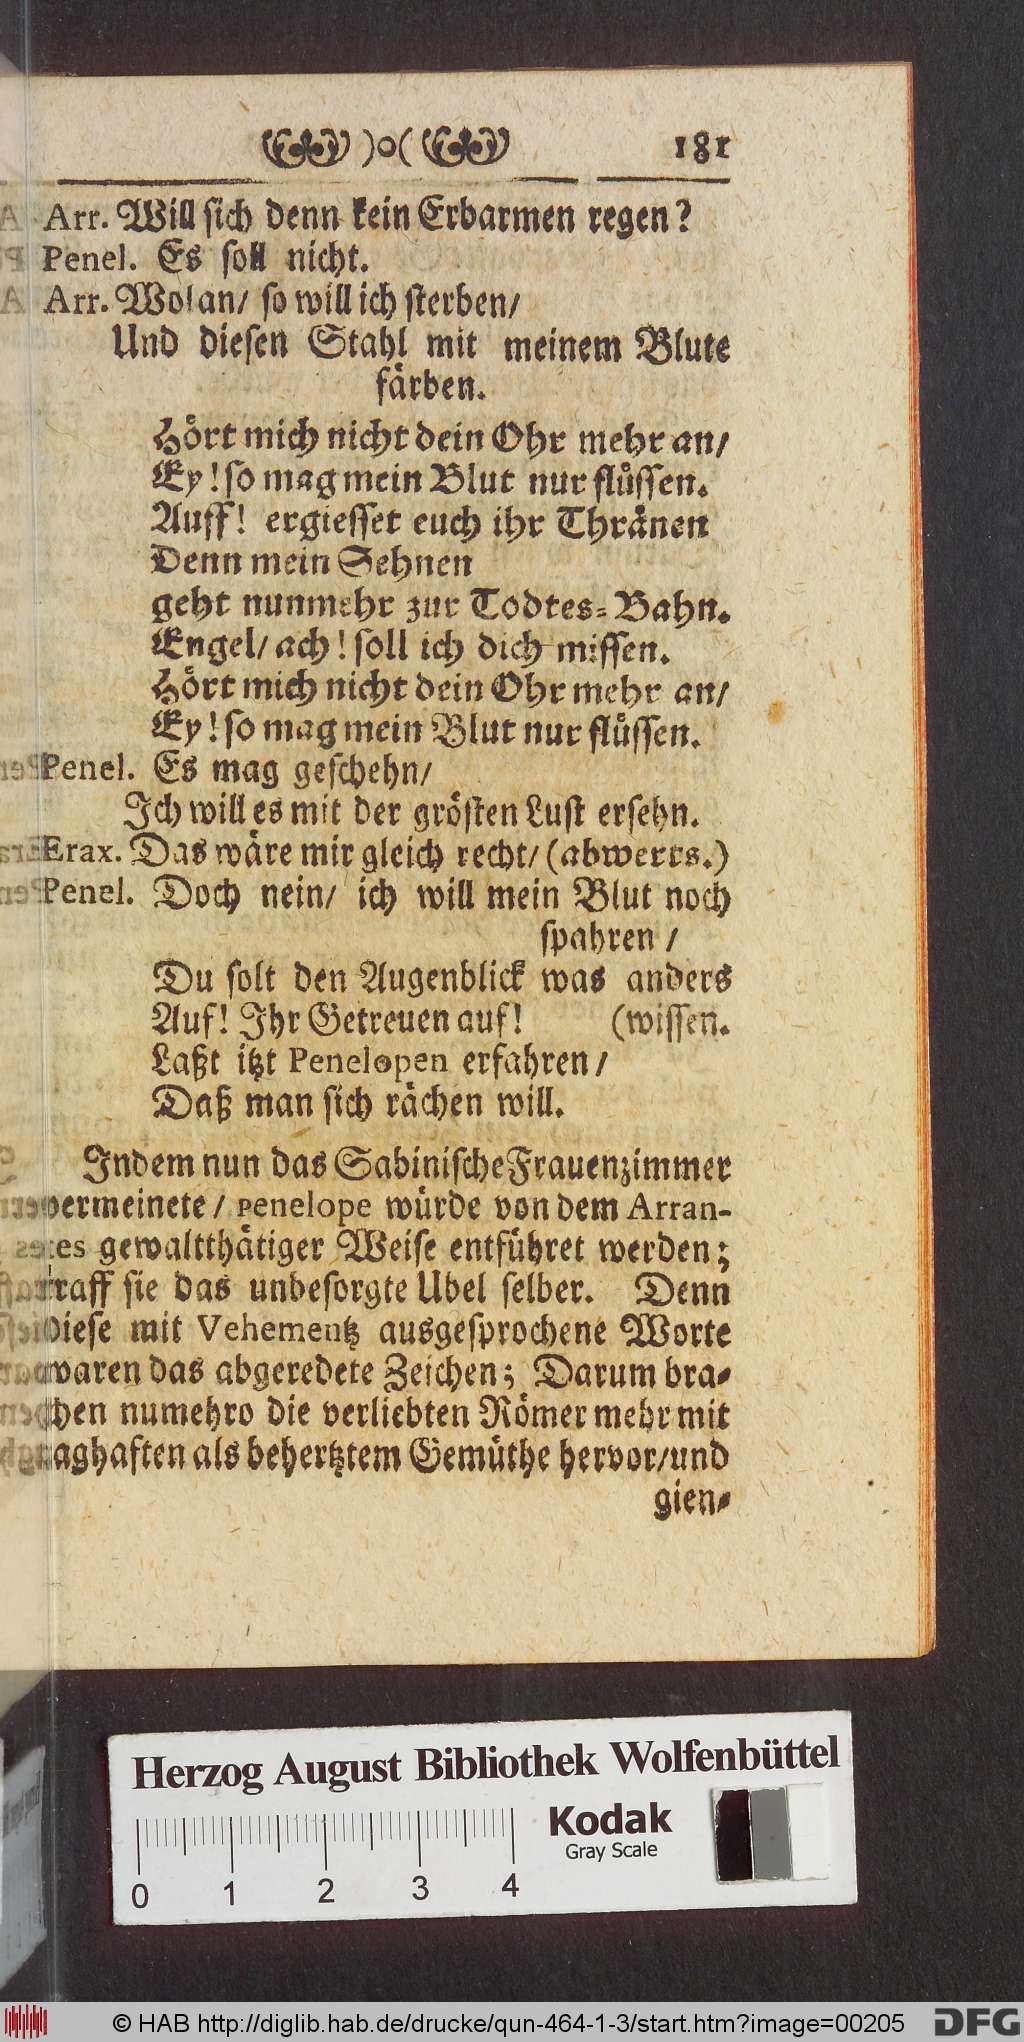 )o( 181
Arr. Will sich denn kein Erbarmen regen?
Penel. Es soll nicht.
Arr. Wolan/ so will ich sterben/
Und diesen Stahl mit meinem Blute
färben.
Hört mich nicht dein Ohr mehr an/
Ey! so mag mein Blut nur flüssen.
Auff! ergiesset euch ihr Thränen
Denn mein Sehnen
geht nunmehr zur Todtes-Bahn.
Engel/ ach! soll ich dich missen.
Hört mich nicht dein Ohr mehr an/
Ey! so mag mein Blut nur flüssen.
Penel. Es mag geschehn/
Ich will es mit der grösten Lust ersehn.
Erax. Das wäre mir gleich recht/ (abwerts.)
Penel. Doch nein/ ich will mein Blut noch
spahren /
Du solt den Augenblick was anders
Auf! Ihr Getreuen auf! (wissen.
Laßt itzt Penelopen erfahren /
Daß man sich rächen will.
Indem nun das Sabinische Frauenzimmer
vermeinete / Penelope würde von dem Arran-
tes gewaltthätiger Weise entführet werden;
traff sie das unbesorgte Ubel selber. Denn
diese mit Vehementz ausgesprochene Worte
waren das abgeredete Zeichen; Darum bra-
chen numehro die verliebten Römer mehr mit
zaghaften als behertztem Gemüthe hervor/und
gien-
Herzog August Bibliothek Wolfenbüttel
Kodak
Gray Scale
0 1 2 3 4
© HAB http://diglib.hab.de/drucke/qun-464-1-3/start.htm?image=00205 DFG